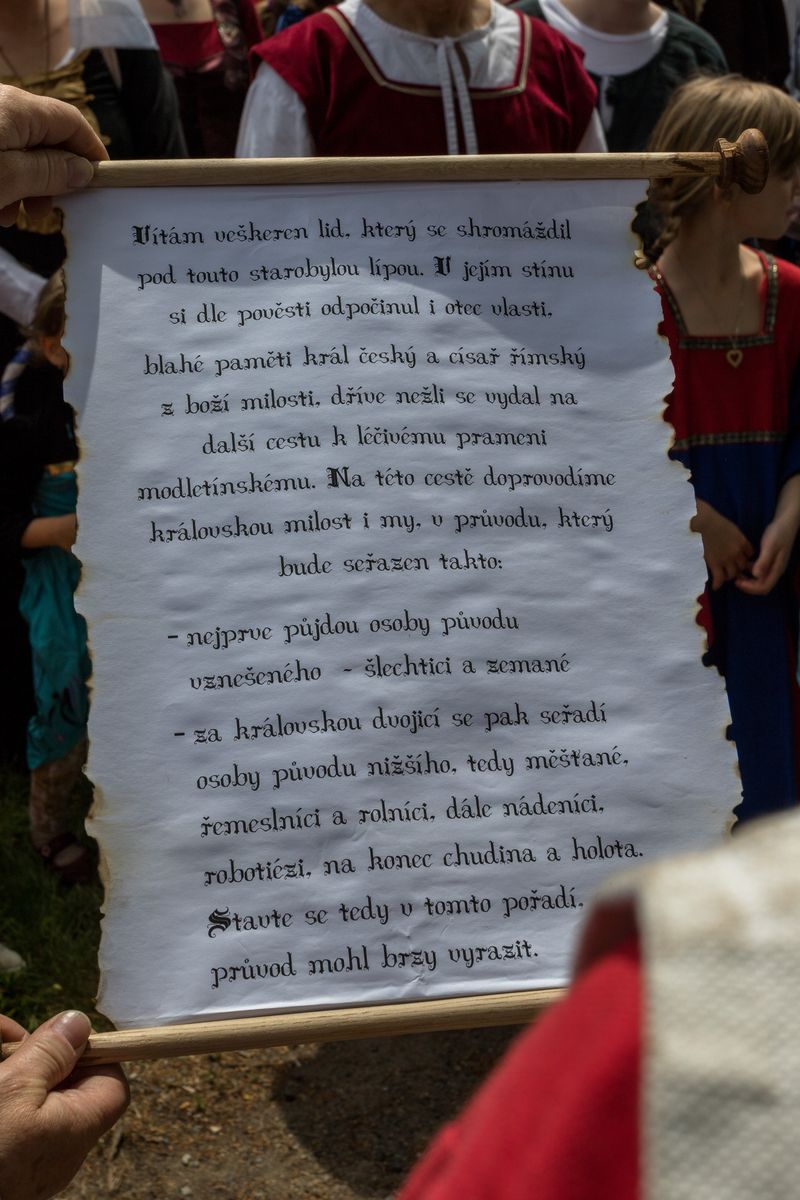 Vítám veškeren lid, který se shromáždil
pod touto starobylou lípou. V jejím stínu
si dle pověsti odpočinul i otec vlasti,
blahé paměti král český a císař římský
z boží milosti, dříve nežli se vydal na
další cestu k léčivému prameni
modletínskému. Na této cestě doprovodíme
královskou milost i my, v průvodu, který
bude seřazen takto:
- nejprve půjdou osoby původu
vznešeného - šlechtici a zemané
- za královskou dvojicí se pak seřadí
osoby původu nižšího, tedy měšťané,
řemeslníci a rolníci, dále nádeníci,
robotiézi, na konec chudina a holota.
Stavte se tedy v tomto pořadí,
průvod mohl brzy vyrazit.